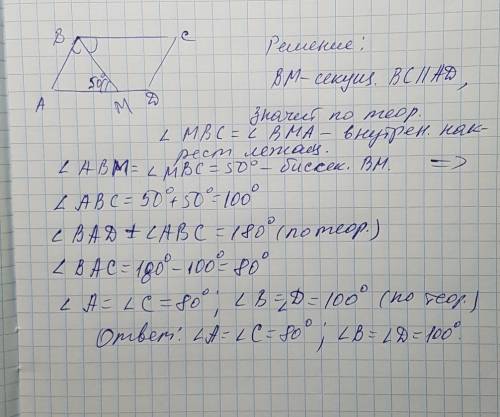 B C
50°
A M D
Решение:
BM-секущ. BC||AD,
Значит по теор.
∠MBC=∠BMA- внутрен. нак-
рест лежащ.
∠ABM=∠MBC=50°- биссек. BM. =>
∠ABC=50°+50°=100°
∠BAD + ∠ABC = 180° (по теор.)
∠BAC=180°-100°=80°
∠A=∠C=80°; ∠B=∠D=100° (по теор.)
Ответ: ∠A=∠C=80°; ∠B=∠D=100°.